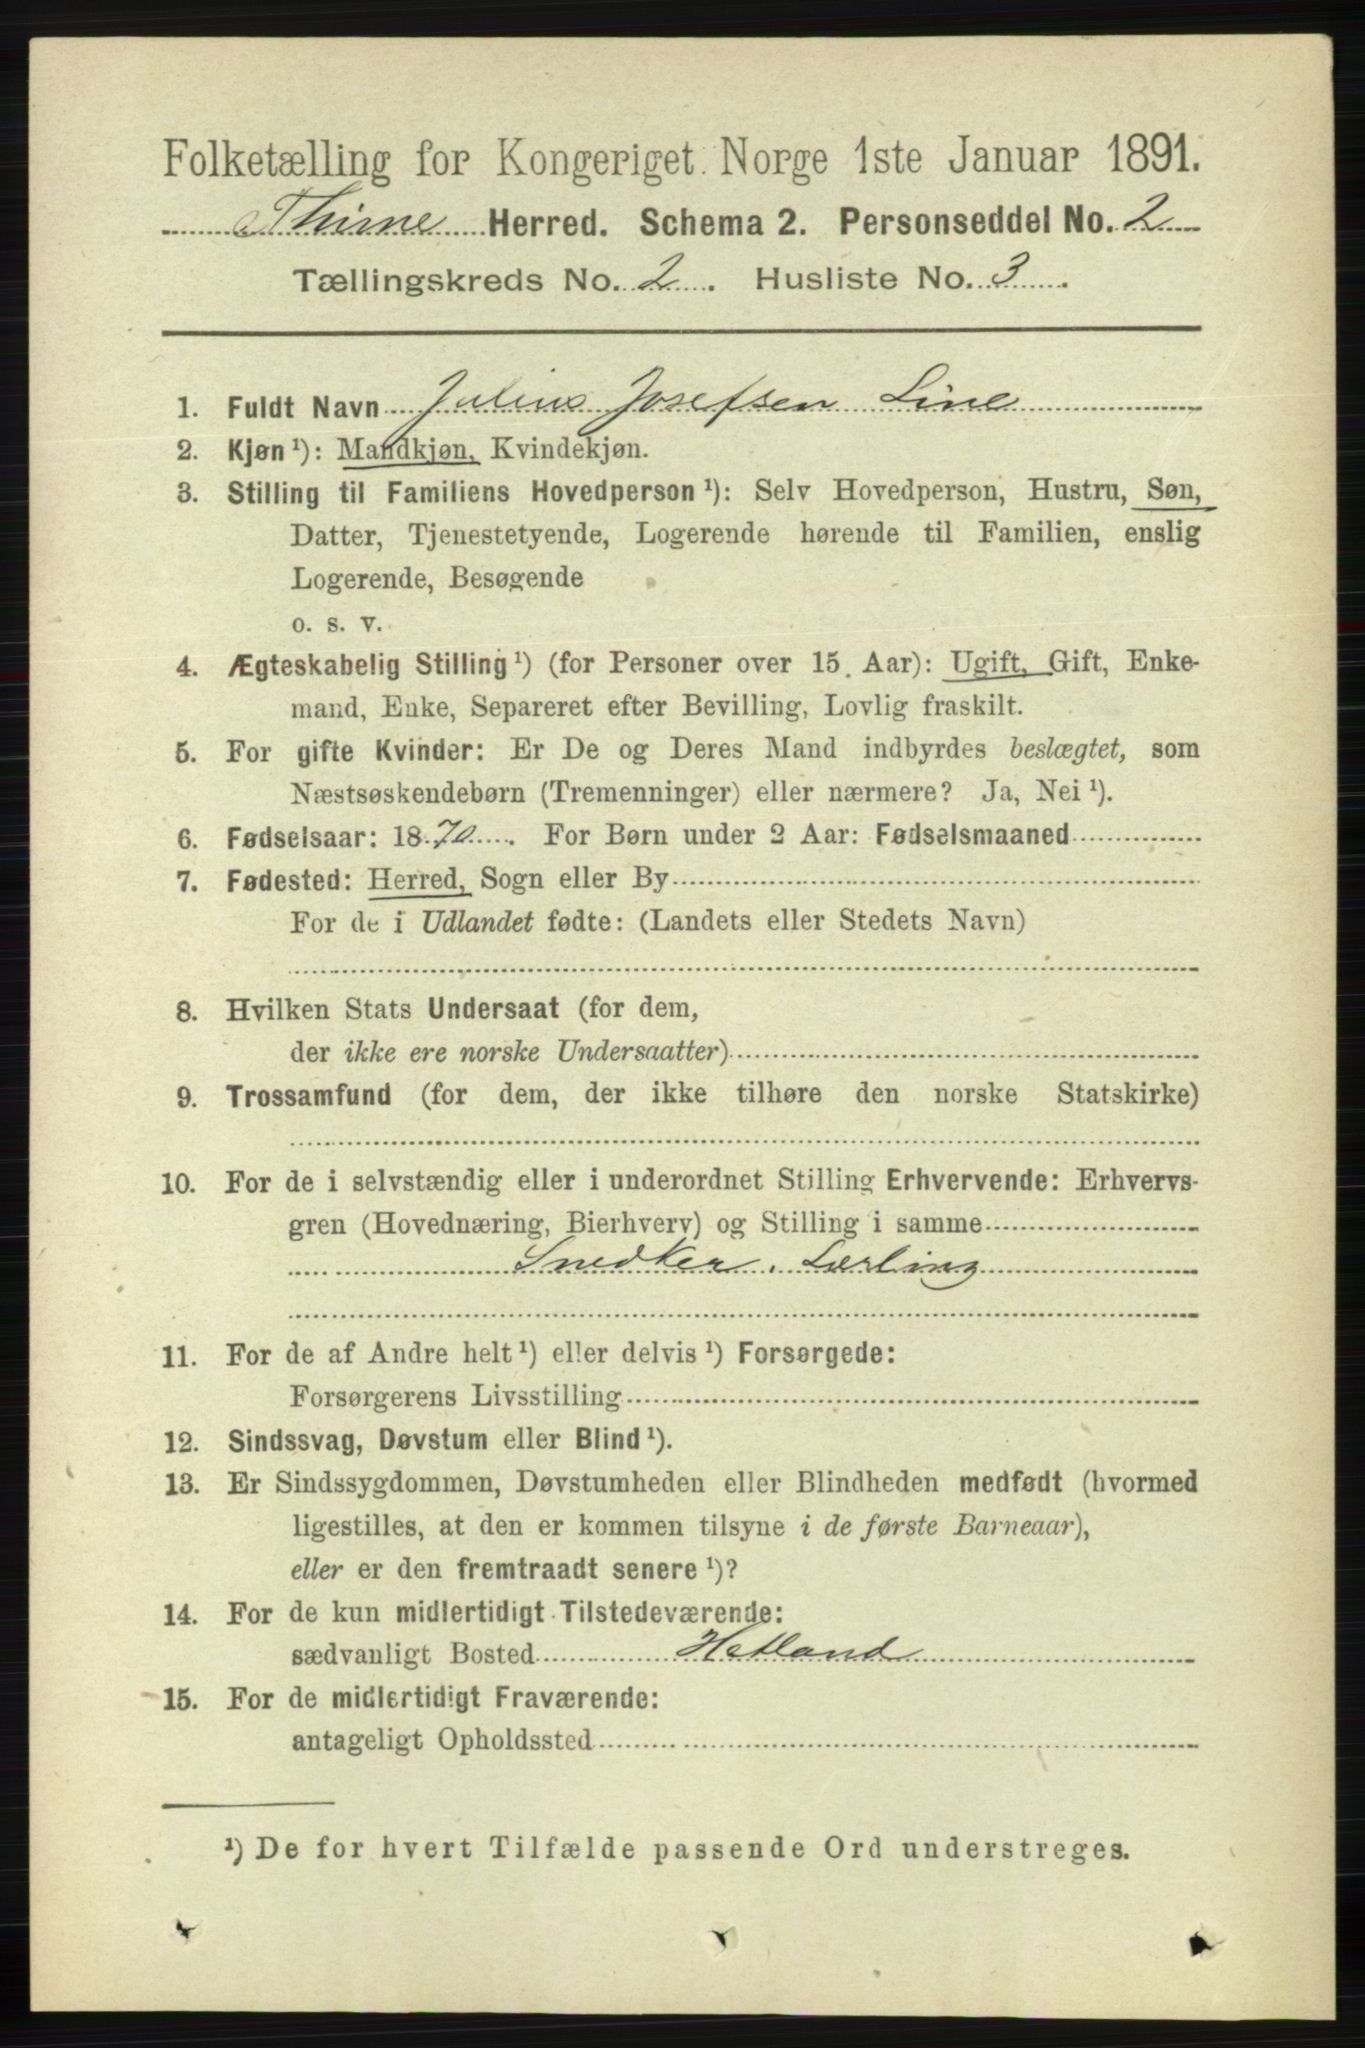 Folketælling for Kongeriget Norge 1ste Januar 1891.
Thime Herred. Schema 2. Personseddel No. 2
Tællingskreds No. 2. Husliste No. 3.
1. Fuldt Navn Julius Josefsen Line
2. Kjøn ¹): Mandkjøn, Kvindekjøn.
3. Stilling til Familiens Hovedperson ¹): Selv Hovedperson, Hustru, Søn,
Datter, Tjenestetyende, Logerende hørende til Familien, enslig
Logerende, Besøgende
o. s. v.
4. Ægteskabelig Stilling ¹) (for Personer over 15 Aar): Ugift, Gift, Enke-
mand, Enke, Separeret efter Bevilling, Lovlig fraskilt.
5. For gifte Kvinder: Er De og Deres Mand indbyrdes beslægtet, som
Næstsøskendebørn (Tremenninger) eller nærmere? Ja, Nei ¹).
6. Fødselsaar: 1870. For Børn under 2 Aar: Fødselsmaaned
7. Fødested: Herred, Sogn eller By
For de i Udlandet fødte: (Landets eller Stedets Navn)
8. Hvilken Stats Undersaat (for dem,
der ikke ere norske Undersaatter)
9. Trossamfund (for dem, der ikke tilhøre den norske Statskirke)
10. For de i selvstændig eller i underordnet Stilling Erhvervende: Erhvervs-
gren (Hovednæring, Bierhverv) og Stilling i samme
Snedker. Lærling
11. For de af Andre helt ¹) eller delvis ¹) Forsørgede:
Forsørgerens Livsstilling
12. Sindssvag, Døvstum eller Blind ¹).
13. Er Sindssygdommen, Døvstumheden eller Blindheden medfødt (hvormed
ligestilles, at den er kommen tilsyne i de første Barneaar),
eller er den fremtraadt senere ¹)?
14. For de kun midlertidigt Tilstedeværende:
sædvanligt Bosted Hetland
15. For de midlertidigt Fraværende:
antageligt Opholdssted
¹) De for hvert Tilfælde passende Ord understreges.